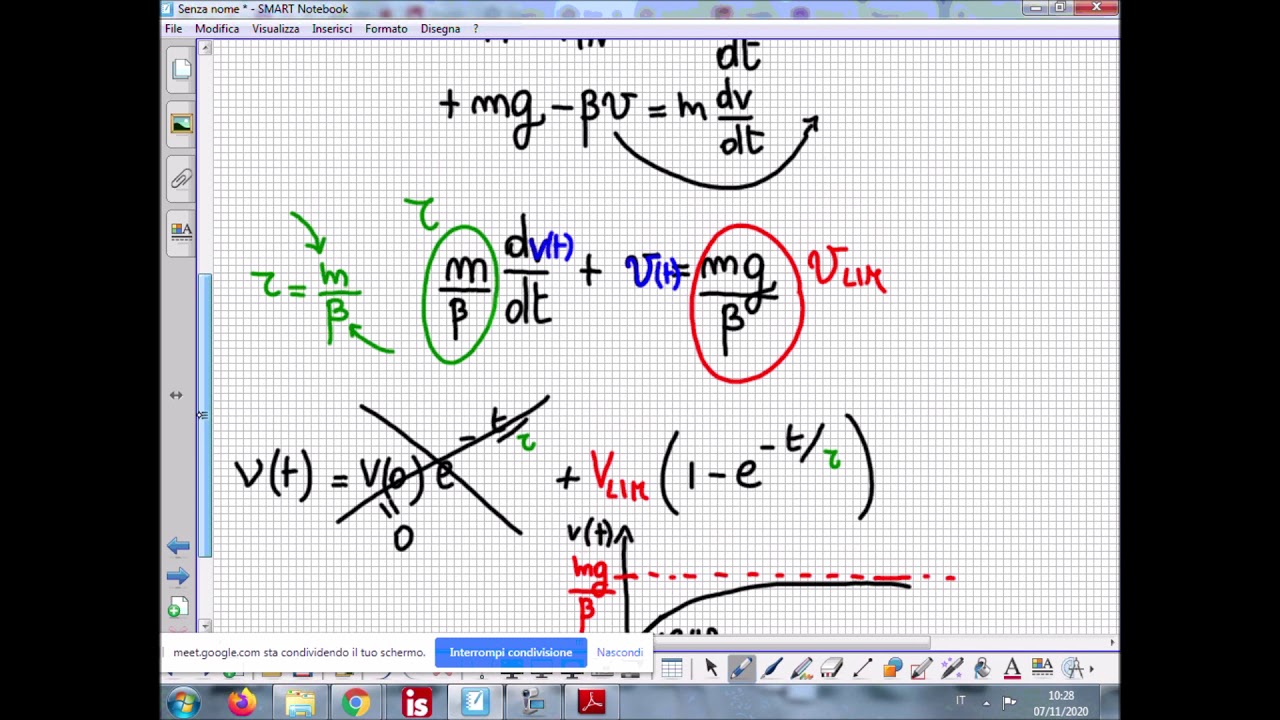 Senza nome * - SMART Notebook
File Modifica Visualizza Inserisci Formato Disegna ?
dt
+ mg - βv = m dv/dt
τ
τ = m/β
m/β dv(t)/dt + v(t) = mg/β V LIM
v(t) = v(0) e - t/τ + V LIM (1 - e -t/τ)
0
v(t)
mg/β
meet.google.com sta condividendo il tuo schermo. Interrompi condivisione Nascondi
IT 10:28
07/11/2020